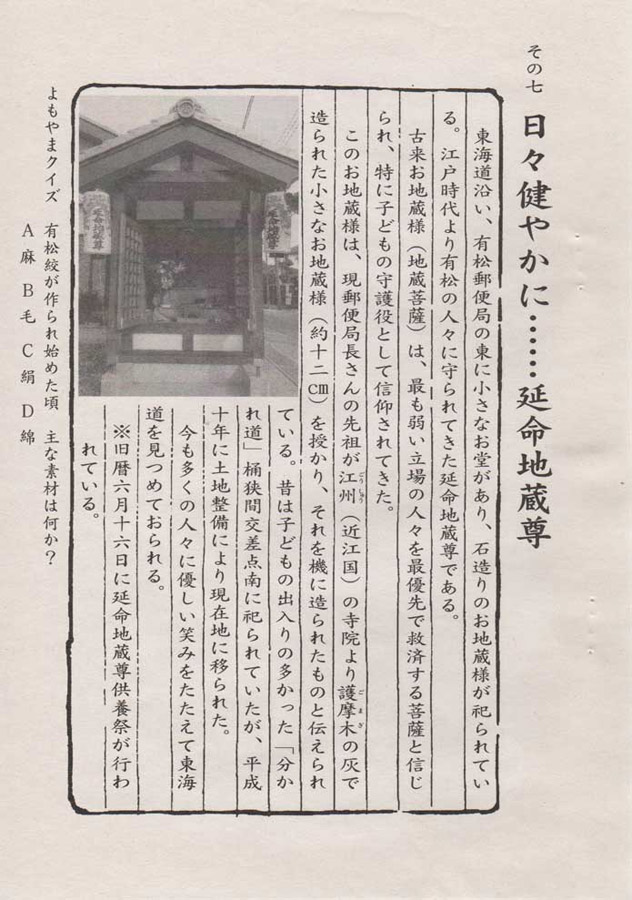 その七 日々健やかに……延命地蔵尊
東海道沿い、有松郵便局の東に小さなお堂があり、石造りのお地蔵様が祀られてい
る。江戸時代より有松の人々に守られてきた延命地蔵尊である。
古来お地蔵様（地蔵菩薩）は、最も弱い立場の人々を最優先で救済する菩薩と信じ
られ、特に子どもの守護役として信仰されてきた。
このお地蔵様は、現郵便局長さんの先祖が江州（近江国）の寺院より護摩木の灰で
造られた小さなお地蔵様（約十二㎝）を授かり、それを機に造られたものと伝えられ
ている。昔は子どもの出入りの多かった「分か
れ道」桶狭間交差点南に祀られていたが、平成
十年に土地整備により現在地に移られた。
今も多くの人々に優しい笑みをたたえて東海
道を見つめておられる。
※旧暦六月十六日に延命地蔵尊供養祭が行わ
れている。
延命地蔵尊
延命地蔵尊
よもやまクイズ 有松絞が作られ始めた頃 主な素材は何か？
A麻 B毛 C絹 D綿